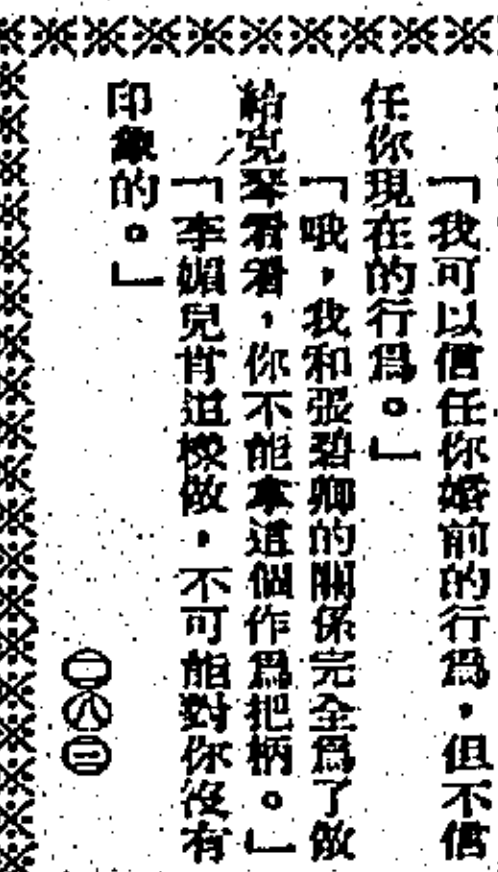 「我可以信任你婚前的行爲，但不信
任你現在的行爲。」
「哦，我和張碧卿的關係完全爲了做
給克琴看看，你不能拿這個作爲把柄。」
「李媚兒肯這樣做，不可能對你沒有
印象的。」
二八三